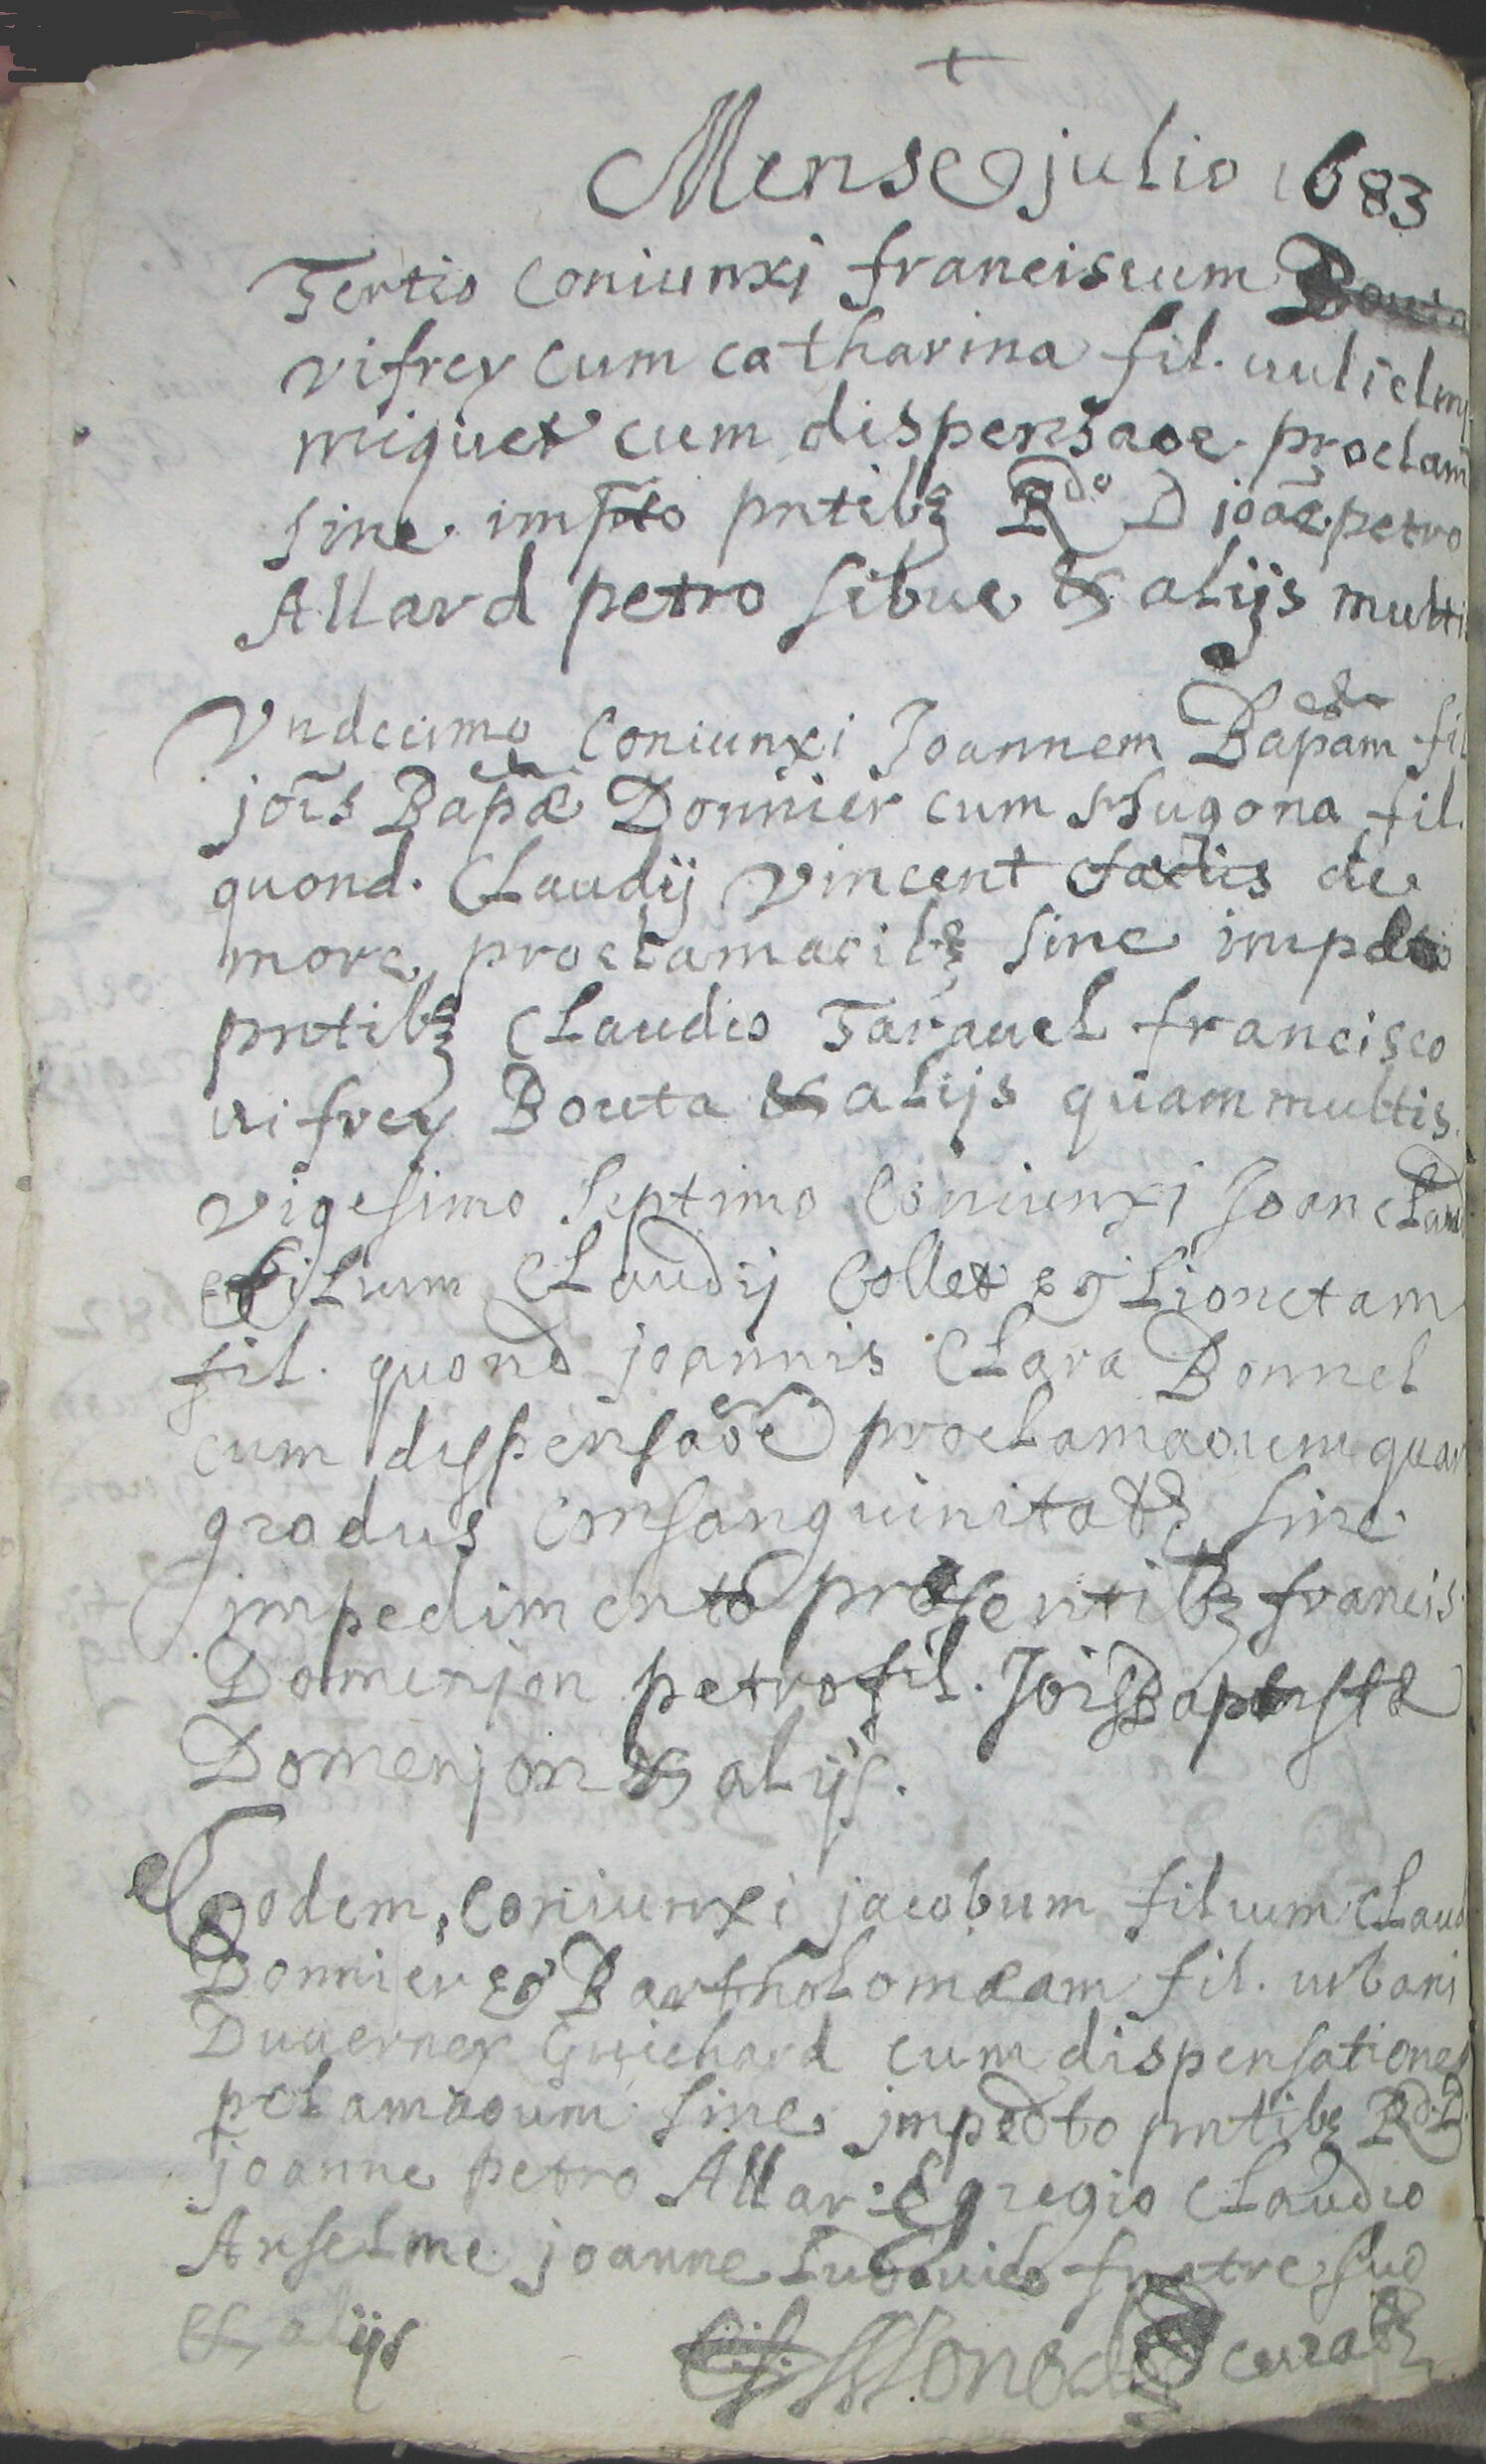 +
Mense julio 1683
Tertio Coniunxi franciscum Bouta
vifrey cum catharina fil. uulielmi
miquet cum dispensaõe proclam
sine impto pntibꝫ Rdo D joãe petro
Allard petro sibue & alijs multis
Vndecimo Coniunxi Joannem Bapãm fil
jois Bapæ Donnier cum Hugona fil.
quond. Claudij Vincent factis de
more proclamaoibꝫ sine impdto
pntibꝫ Claudio Tarauel francisco
uifrey Bouta & alijs quam multis.
Vigesimo septimo Coniunxi Joan Claud
filium Claudij Collet & Lionetam
fil. quond joannis Clara Bonnel
cum dispensaõe proclamaoum quar
gradus Consanguinitatꝫ sine
impedimento præsentibꝫ francis
Domenjon petro fil. Jois Baptistæ
Domenjon & alijs.
Eodem, Coniunxi jacobum filium Claud
Donnier & Bartholomæam fil. urbani
Duuerney Guichard cum dispensatione
pclamaõum sine impedto pntibꝫ Rd. D.
joanne petro Allar. Egregio Claudio
Anselme joanne Ludouico fratre suo
& alijs
curatꝫ